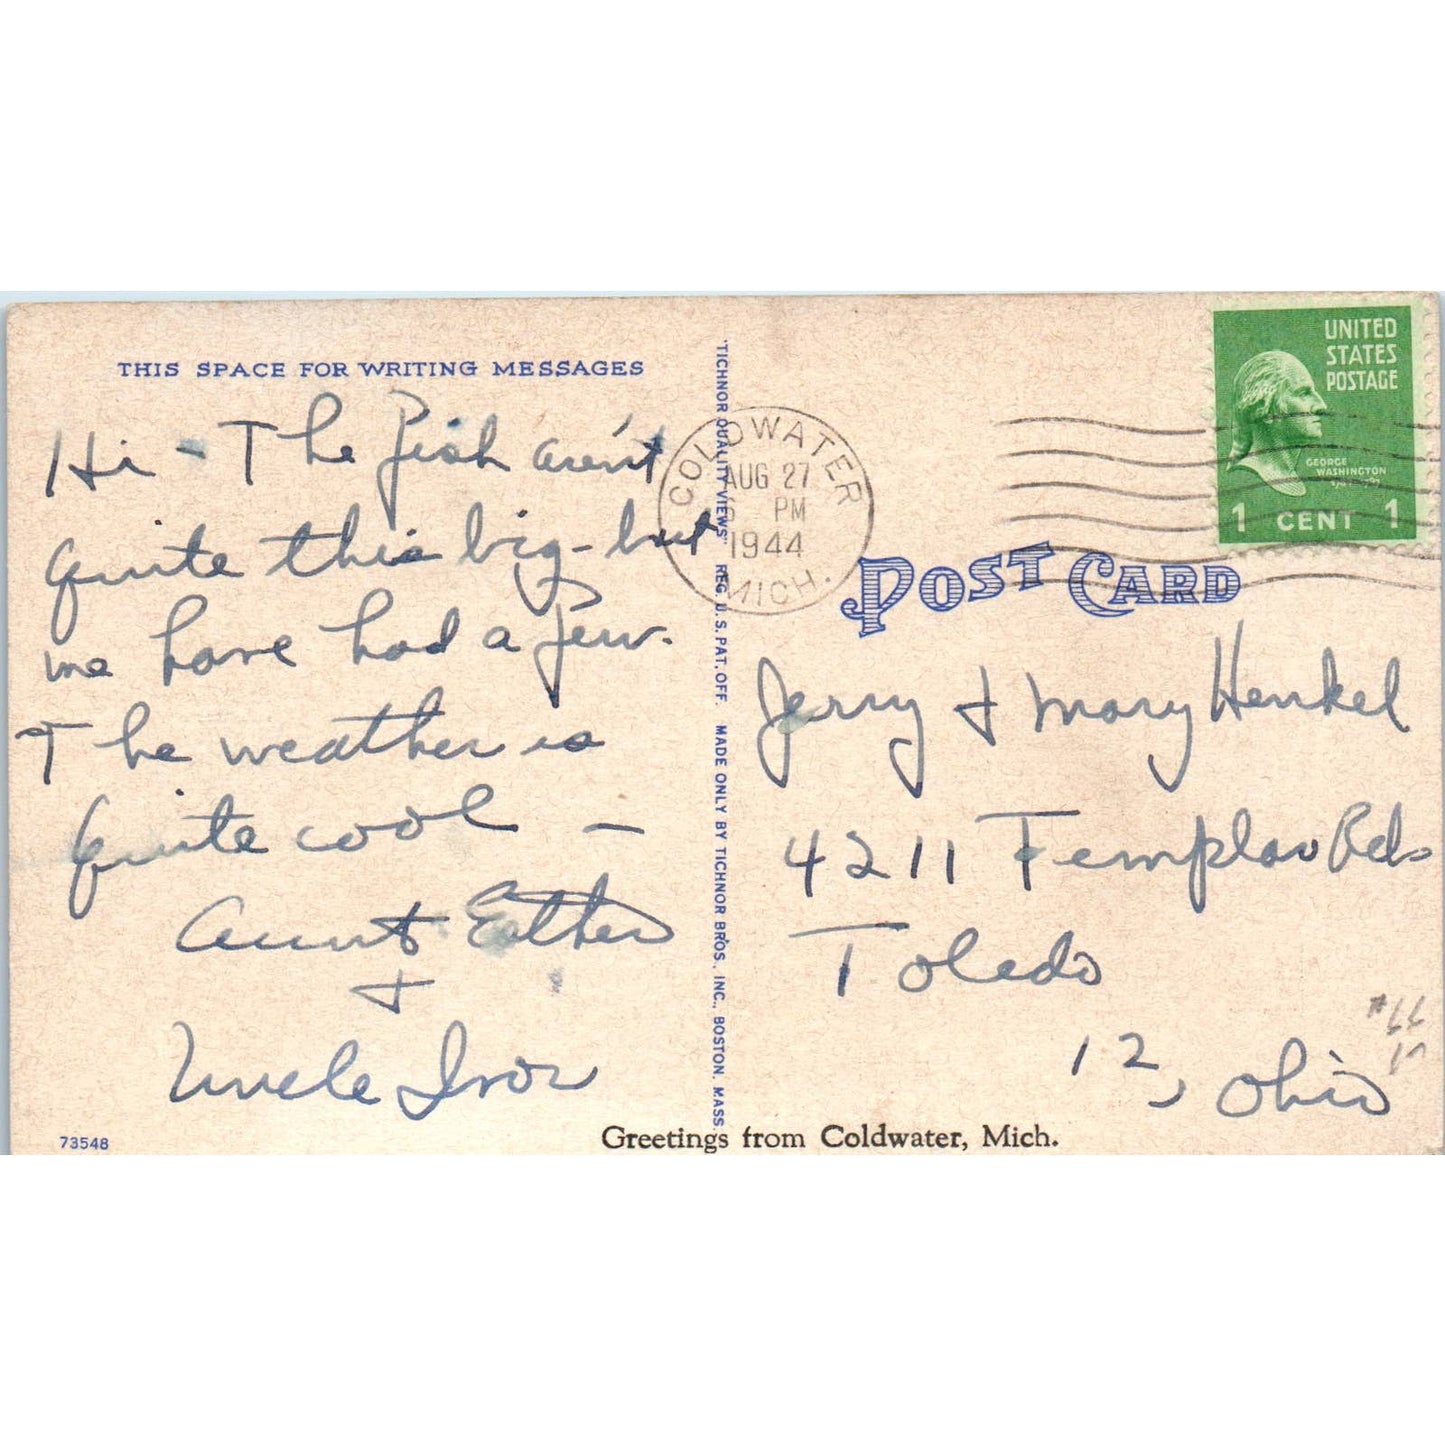 THIS SPACE FOR WRITING MESSAGES
Hi - The fish aren't
quite this big - but
we have had a few.
The weather is
quite cool —
Aunt Esther
+
Uncle Ivor
73548
"TICHNOR QUALITY VIEWS" REG. U.S. PAT. OFF. MADE ONLY BY TICHNOR BROS., INC., BOSTON, MASS.
COLDWATER
AUG 27
6 PM
1944
MICH.
UNITED
STATES
POSTAGE
GEORGE
WASHINGTON
1 CENT 1
POST CARD
Jerry + Mary Henkel
4211 Templar Rd.
Toledo
12, Ohio
Greetings from Coldwater, Mich.